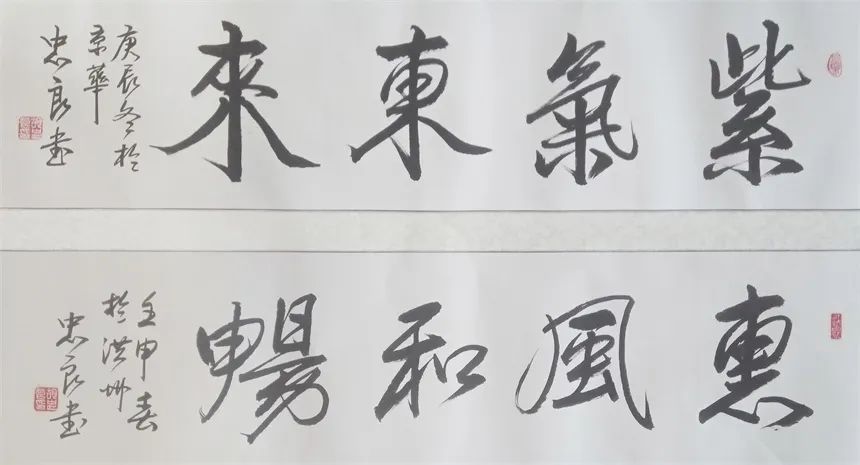 紫氣東來
庚辰冬於
京華
忠良书
惠風和暢
壬申春
於洪州
忠良书